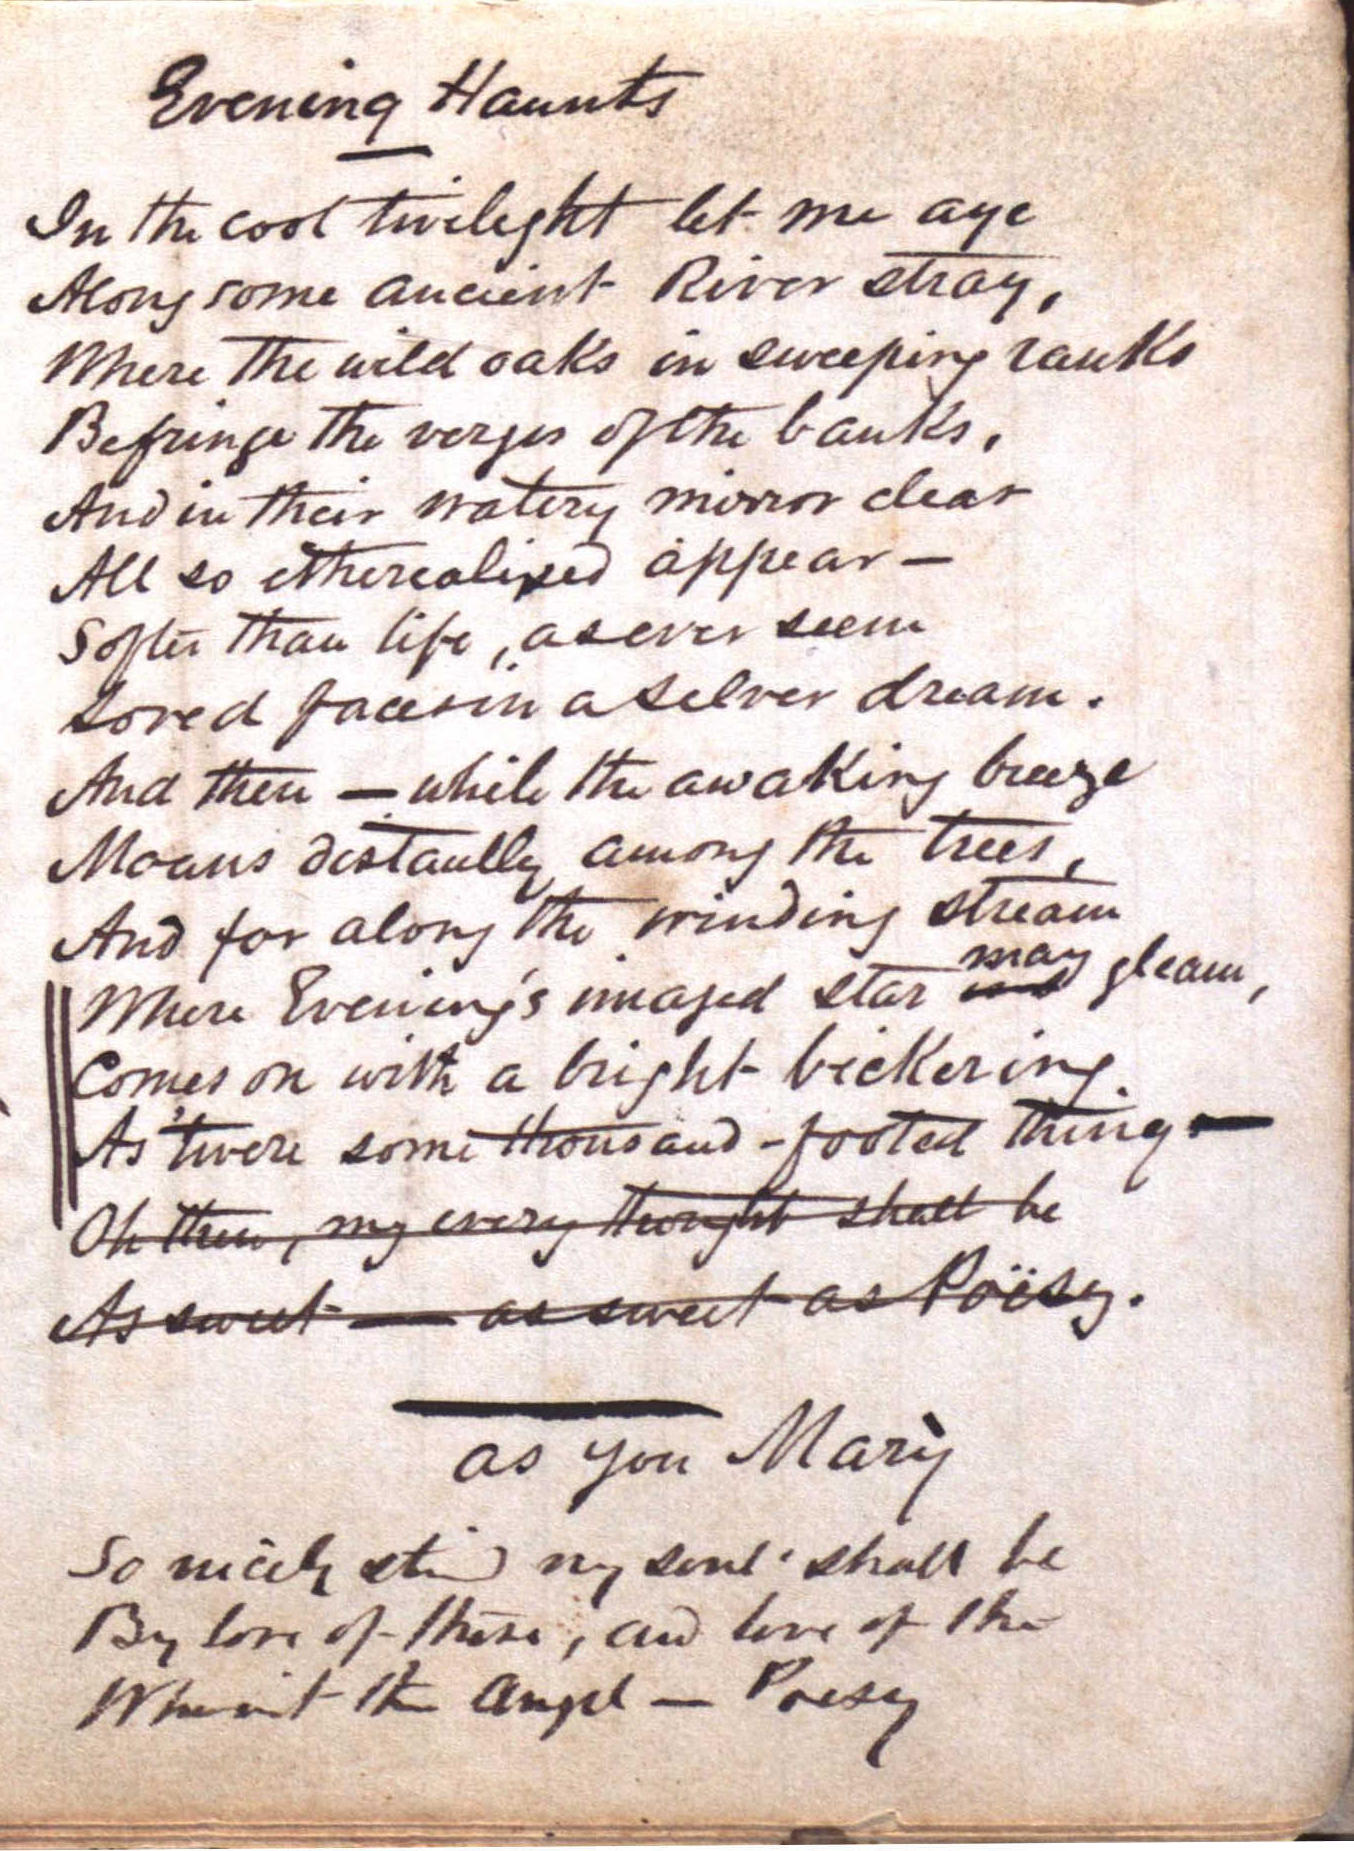 Evening Haunts
In the cool twilight let me aye
Along some ancient River stray,
Where the wild oaks in sweeping ranks
Befringe the verges of the banks,
And in their watery mirror clear
All so etherealized appear —
Softer than life, as ever seem
Loved faces in a silver dream.
And then — while the awaking breeze
Moans distantly among the trees,
And far along the winding stream
may
Where Evening's imaged star gleam,
Comes on with a bright bickering
As 'twere some thousand-footed thing —
Oh then, my every thought shall be
As sweet — as sweet as Poësy.
as you Mary
So nicely my soul shall be
By love of these, and love of the
the Angel — Poesy